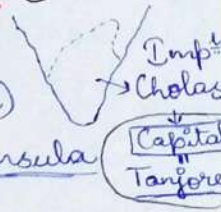 Imp^t
Cholas
Capital
"
Tanjore
nsula